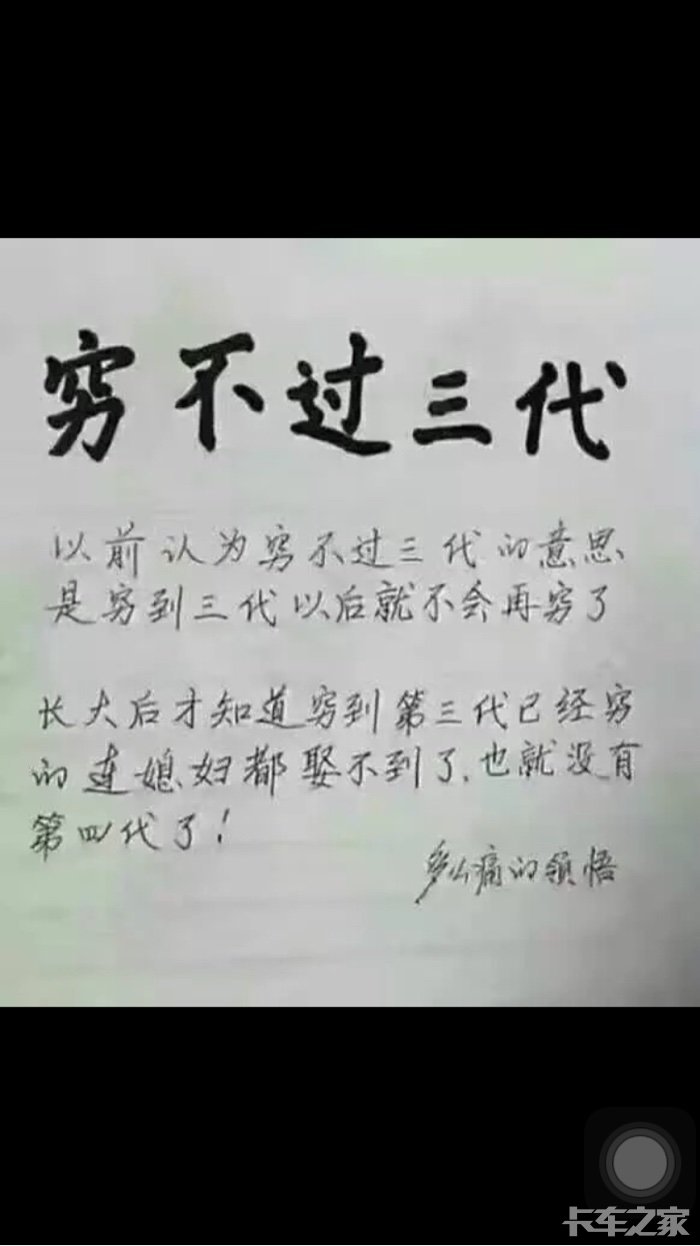 穷不过三代
以前认为穷不过三代的意思
是穷到三代以后就不会再穷了
长大后才知道穷到第三代已经穷
的连媳妇都娶不到了,也就没有
第四代了!
多么痛的领悟
卡车之家